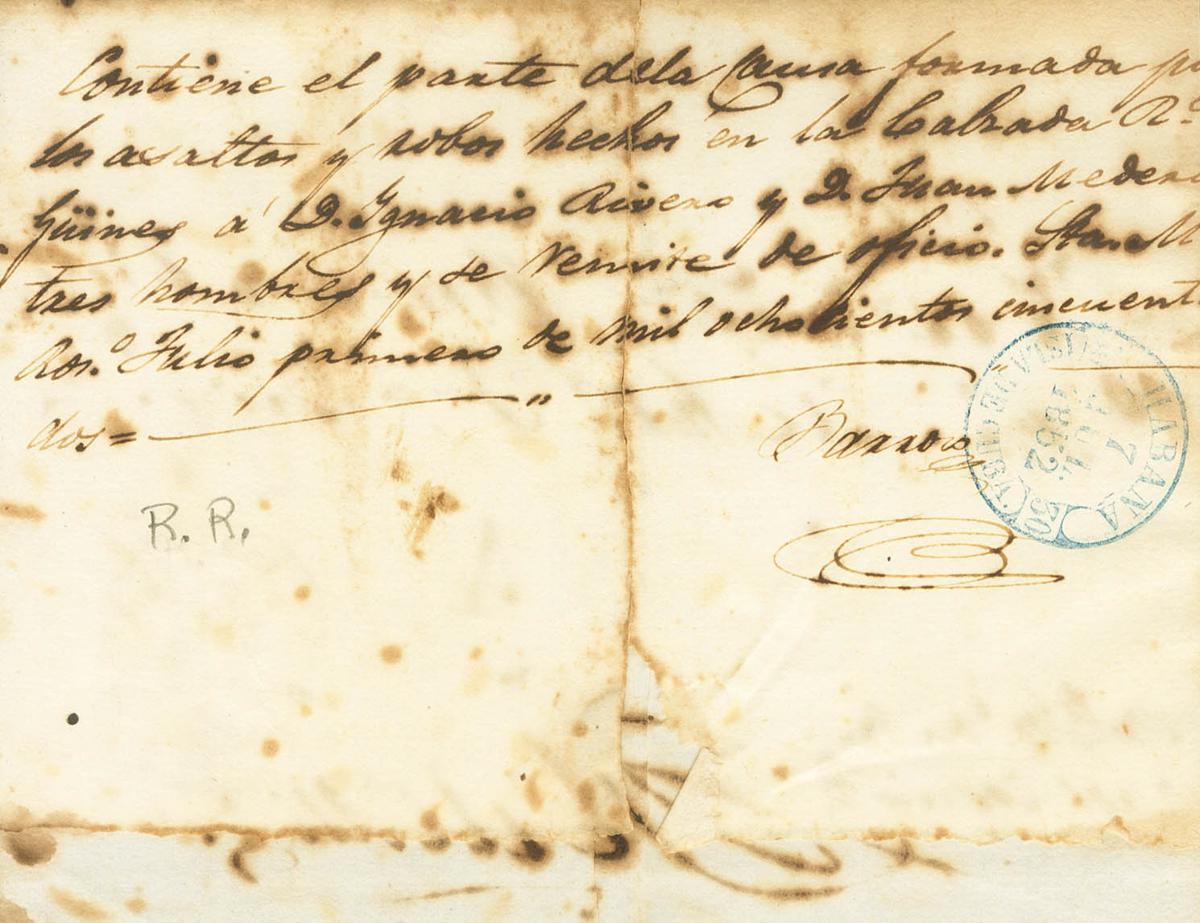 Contiene el parte dela Causa formada p
los asaltos y robos hechos en la Calzada Rl
Güines á D. Ignacio Rivero y D. Juan Medero
tres hombres y se remite de oficio. Sta. M
Ros.o Julio primero de mil ochocientos cincuent
dos=
Barroso
R. R.
HABANA
7
JUL.
1852
ISLA DE CUBA